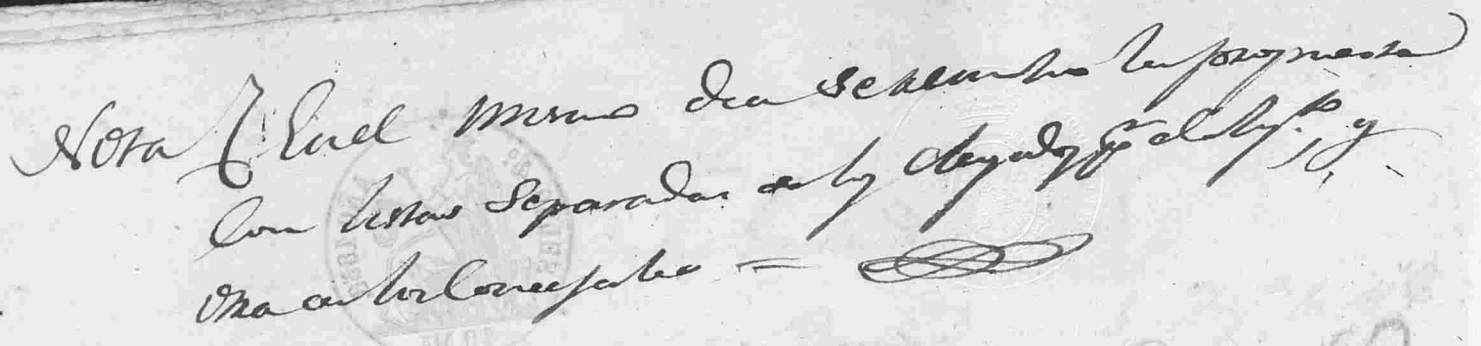 Nota En el mismo dia se remitio la propuesta
con listas separadas de los elegidos pª el Ayto, y
otra de los Concejales =